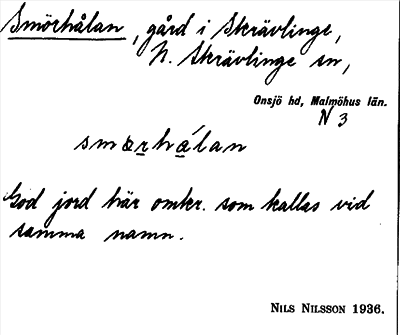 Smörhålan, gård i Skrävlinge,
N. Skrävlinge sn,
Onsjö hd, Malmöhus län.
N 3
smœrhålan
God jord här omkr. som kallas vid
samma namn.
NILS NILSSON 1936.